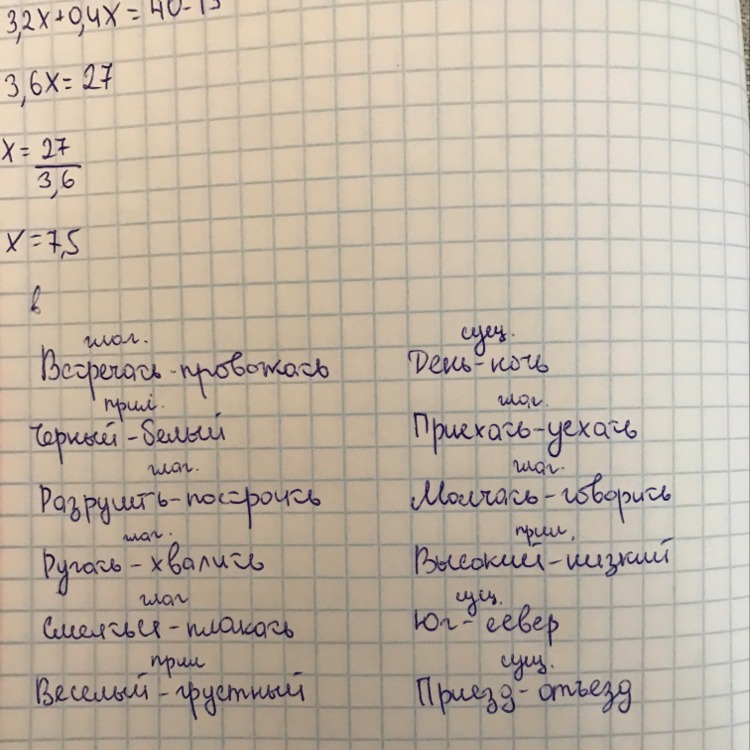 3,2x+0,4x = 40-13
3,6x = 27
x = 27
3,6
x = 7,5
в
глаг. сущ.
Встречать - провожать День - ночь
прил. глаг.
Черный - белый Приехать - уехать
глаг. глаг.
Разрушить - построить Молчать - говорить
глаг. прил.
Ругать - хвалить Высокий - низкий
глаг сущ.
Смеяться - плакать Юг - север
прил сущ.
Веселый - грустный Приезд - отъезд